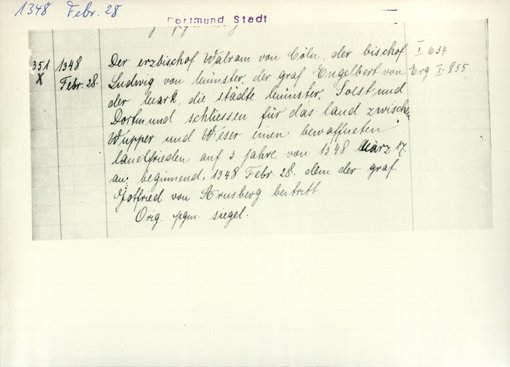 1348 Febr. 28
Dortmund Stadt
351 1348 Der erzbischof Walram von Cöln, der bischof I 634
X Febr. 28. Ludwig von Münster, der graf Engelbert von Erg I. 855
der Mark, die städte Münster, Soest und
Dortmund schliessen für das land zwischen
Wupper und Weser einen bewaffneten
landfrieden auf 3 jahre von 1348 März 17
an beginnend, 1348 Febr. 28. dem der graf
Gottfried von Arnsberg beitritt.
Orig. pgm. siegel.